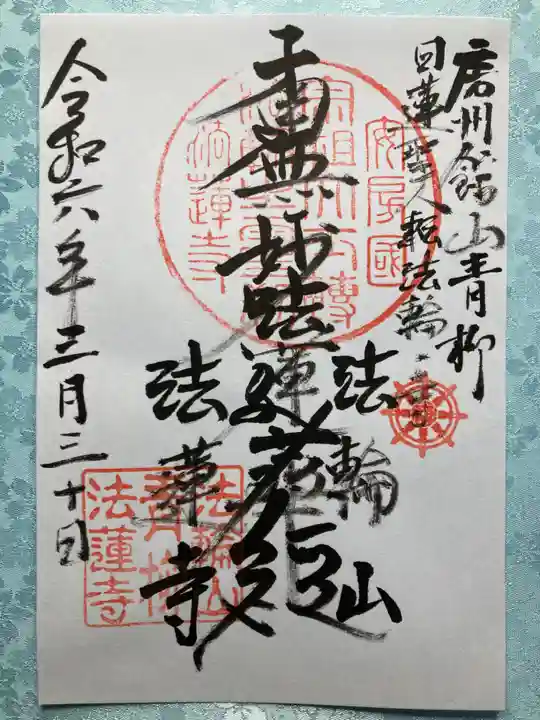 房州館山青柳
日蓮聖人転法輪之寺
南無妙法蓮華経
法輪山
法蓮寺
令和六年三月三十日
安房國
宗祖大士轉
法蓮寺
法輪山
青柳
法蓮寺